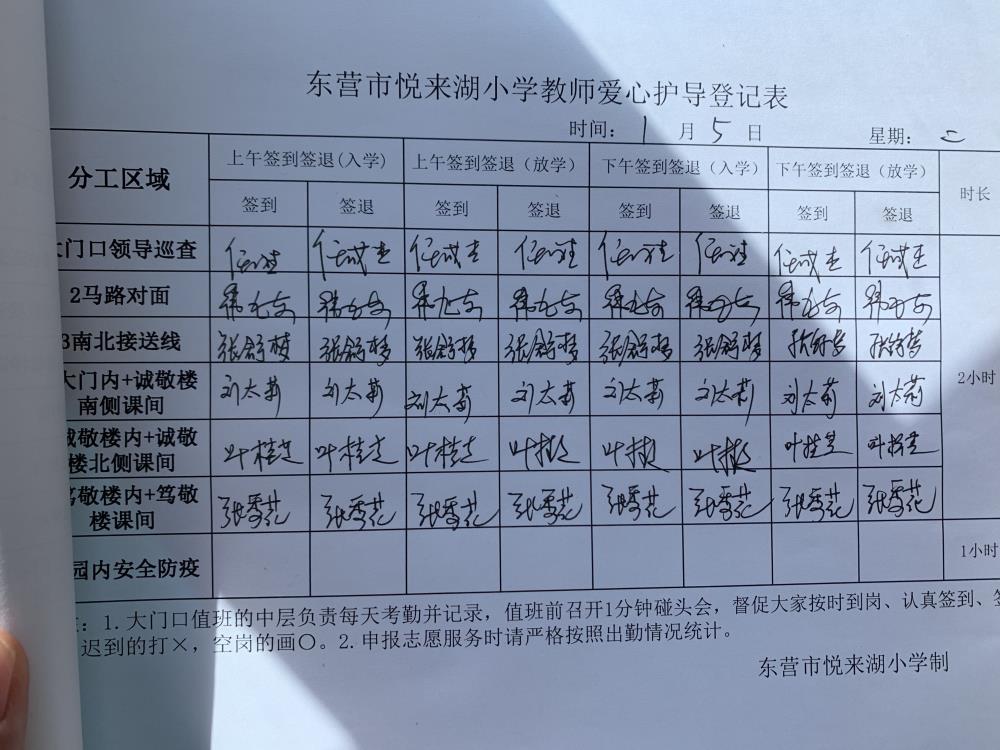 东营市悦来湖小学教师爱心护导登记表
时间： 1 月 5 日 星期： 二
分工区域 上午签到签退(入学) 上午签到签退（放学） 下午签到签退（入学） 下午签到签退（放学） 时长
签到 签退 签到 签退 签到 签退 签到 签退
门口领导巡查
2马路对面
3南北接送线 张舒梦 张舒梦 张舒梦 张舒梦 张舒梦 张舒梦 张舒梦 张舒梦
2小时
大门内+诚敬楼 刘太莉 刘太莉 刘太莉 刘太莉 刘太莉 刘太莉 刘太莉 刘太莉
南侧课间
诚敬楼内+诚敬 叶桂芝 叶桂芝 叶桂芝 叶桂芝 叶桂芝 叶桂芝 叶桂芝 叶桂芝
楼北侧课间
笃敬楼内+笃敬 张秀花 张秀花 张秀花 张秀花 张秀花 张秀花 张秀花 张秀花
楼课间
园内安全防疫 1小时
：1.大门口值班的中层负责每天考勤并记录，值班前召开1分钟碰头会，督促大家按时到岗、认真签到、签
迟到的打×，空岗的画〇。2.申报志愿服务时请严格按照出勤情况统计。
东营市悦来湖小学制